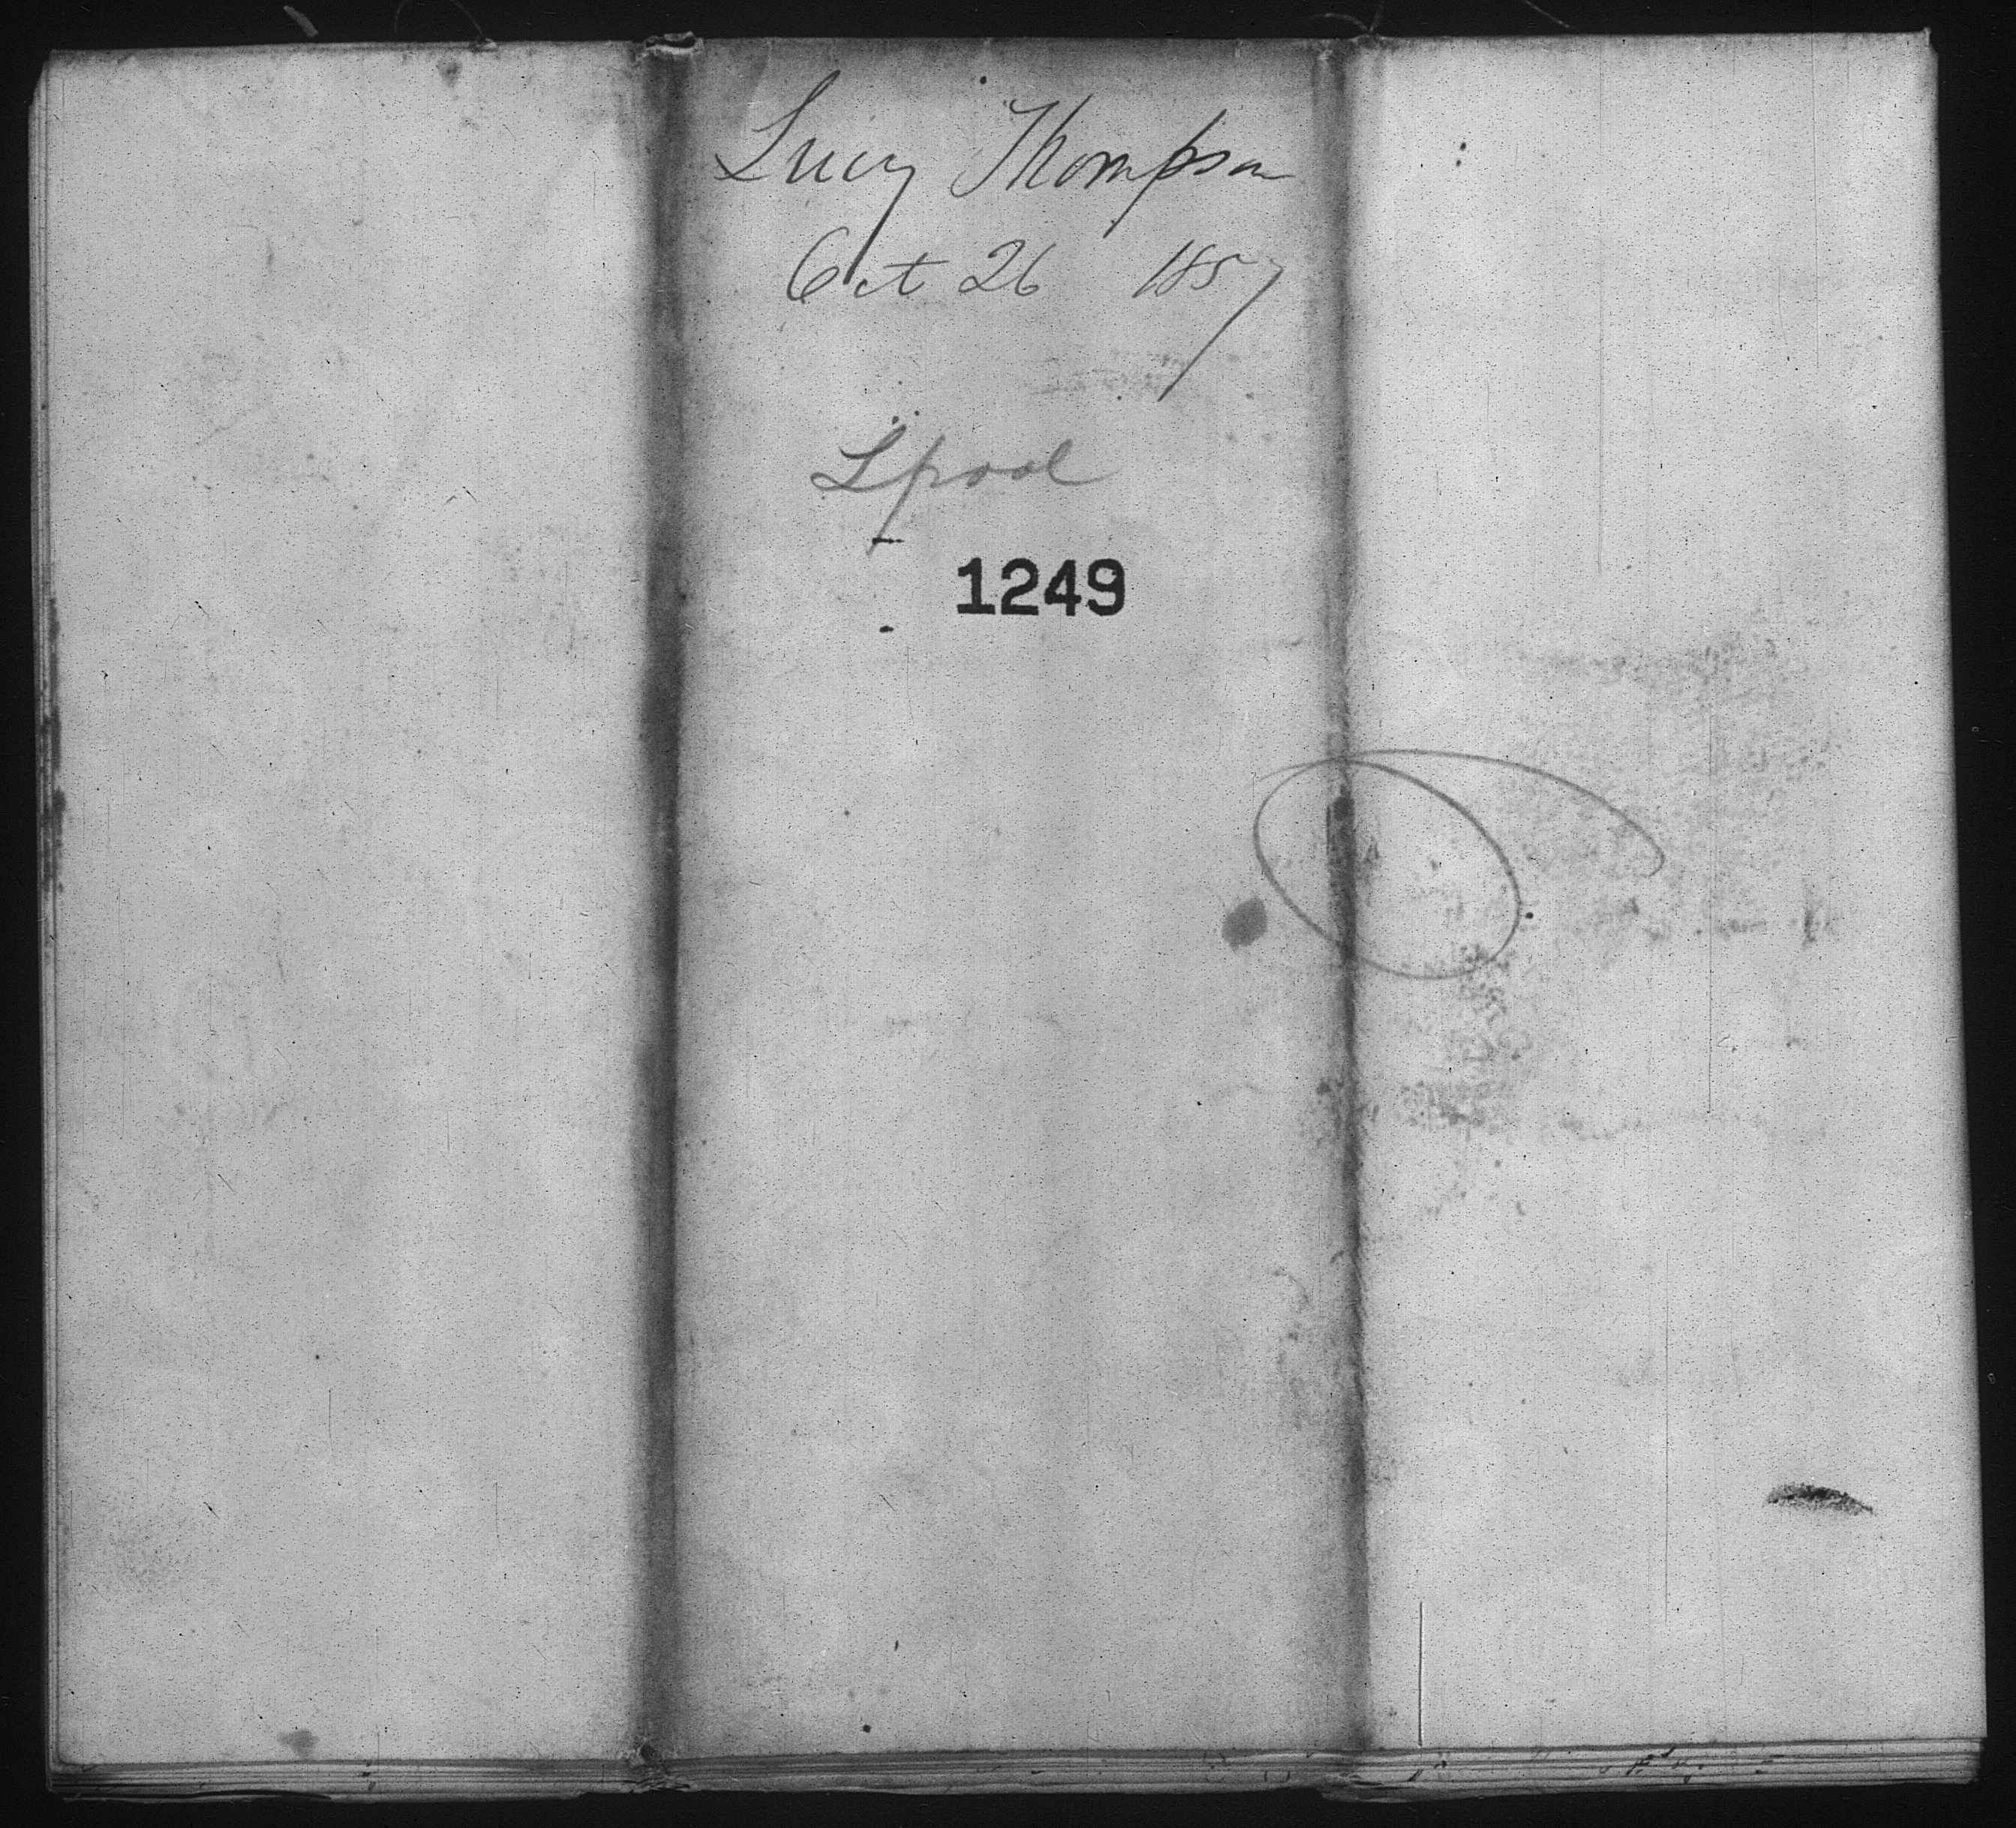 Lucy Thompson
Oct 26 1857
Lpool
1249